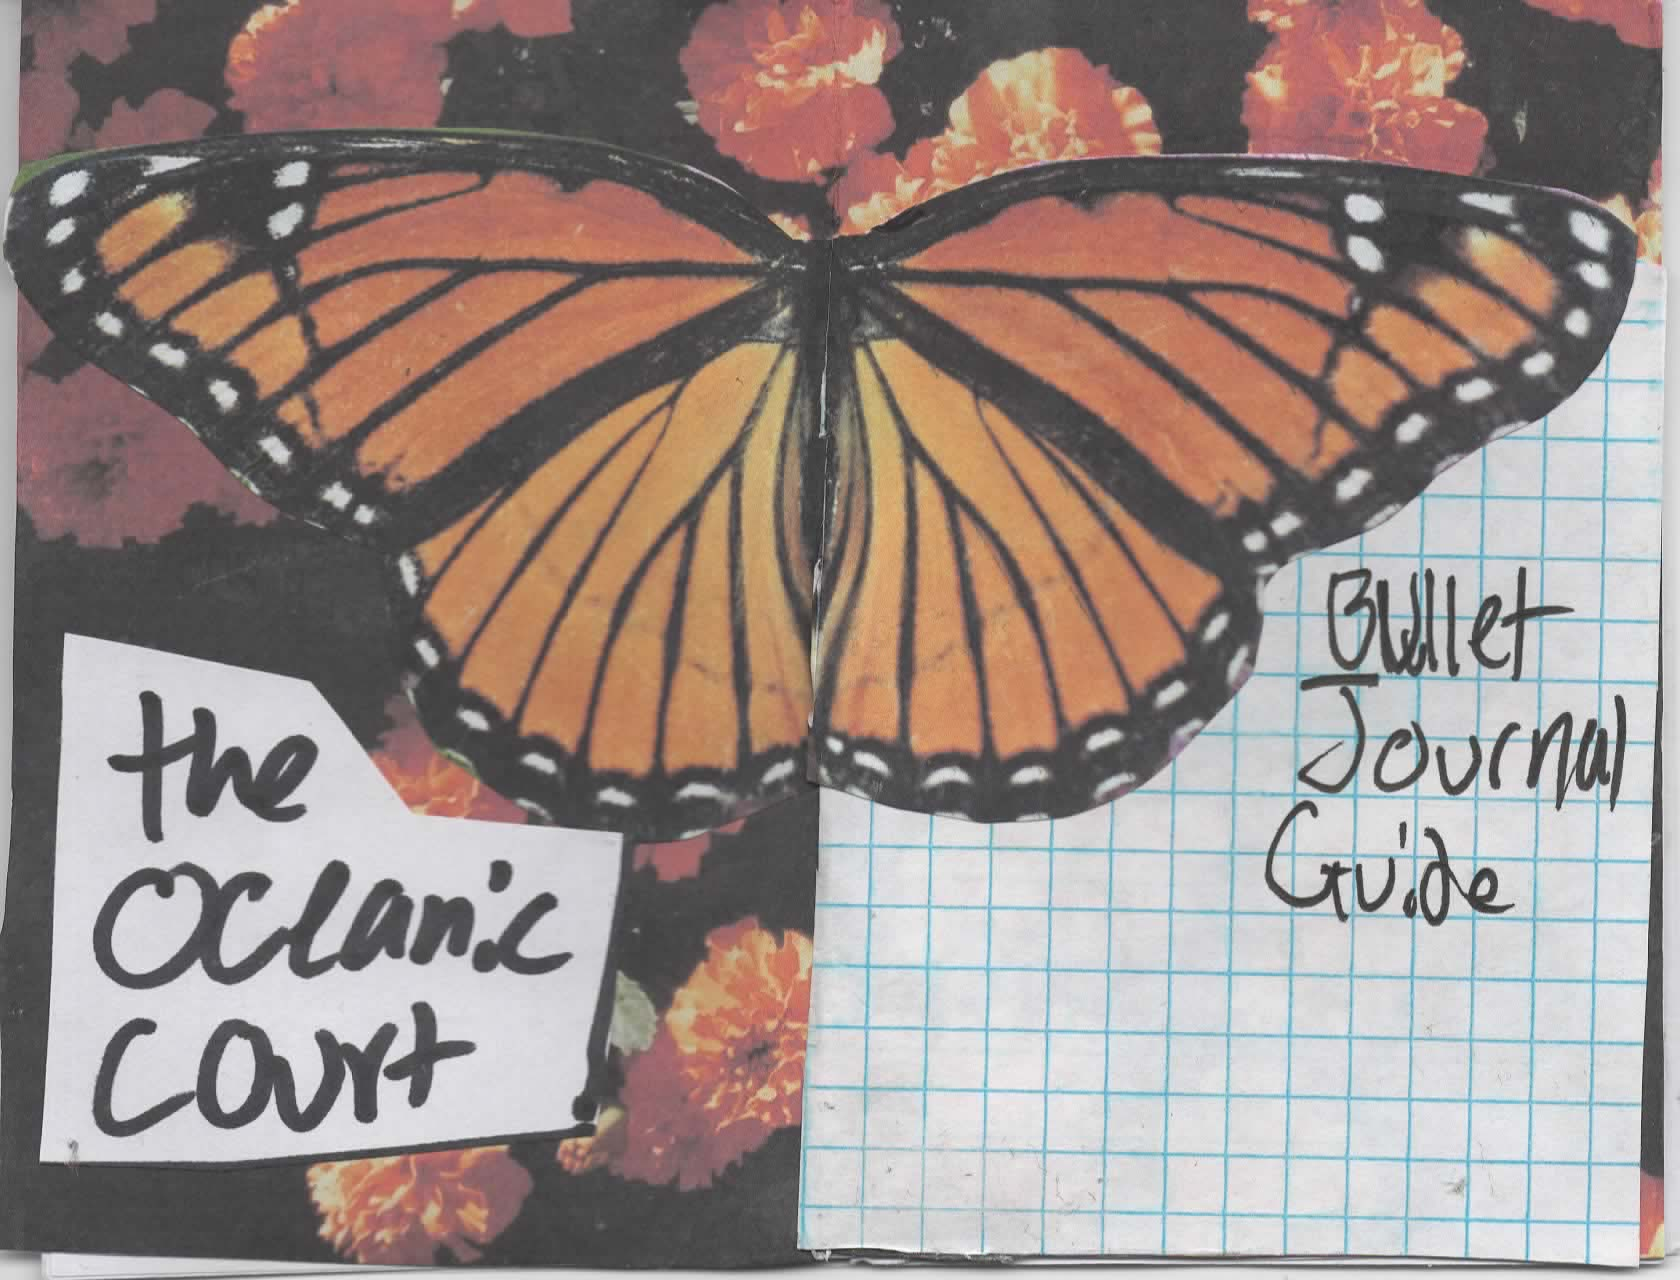 the
Oceanic
Court
Bullet
Journal
Guide